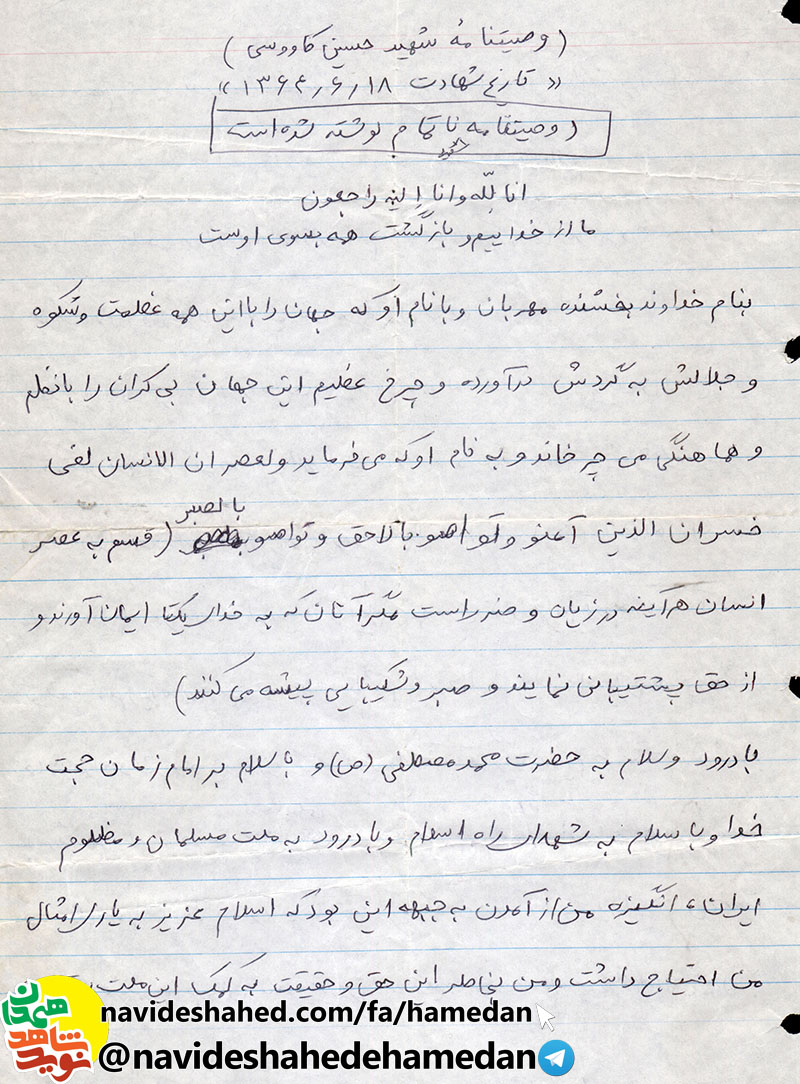 ( وصیتنامه شهید حسین کاووسی )
« تاریخ شهادت ۱۳۶۴/۶/۱۸ »
( وصیتنامه ناتمام نوشته شده است
انا لله وانا الیه راجعون
ما از خداییم و بازگشت همه بسوی اوست
بنام خداوند بخشنده مهربان و با نام او که جهان را با این همه عظمت و شکوه
و جلالش به گردش درآورده و چرخ عظیم این جهان بی کران را با نظم
و هماهنگی می چرخاند و به نام او که می فرماید ولعصر ان الانسان لفی
خسران الذین آمنو و تواصو بالاحق و تواصو بالصبر ( قسم به عصر
انسان هرآینه در زیان و ضرر است مگر آنان که به خدای یکتا ایمان آورند و
از حق پشتیبانی نمایند و صبر و شکیبایی پیشه می کنند )
با درود و سلام به حضرت محمد مصطفی (ص) و با سلام بر امام زمان حجت
خدا و با سلام به شهدای راه اسلام و با درود به ملت مسلمان و مظلوم
ایران، انگیزه من از آمدن به جبهه این بود که اسلام عزیز به یاری امثال
من احتیاج داشت و من بخاطر این حق و حقیقت به کمک این ملت
نوید شاهد همدان
navideshahed.com/fa/hamedan
@navideshahedehamedan